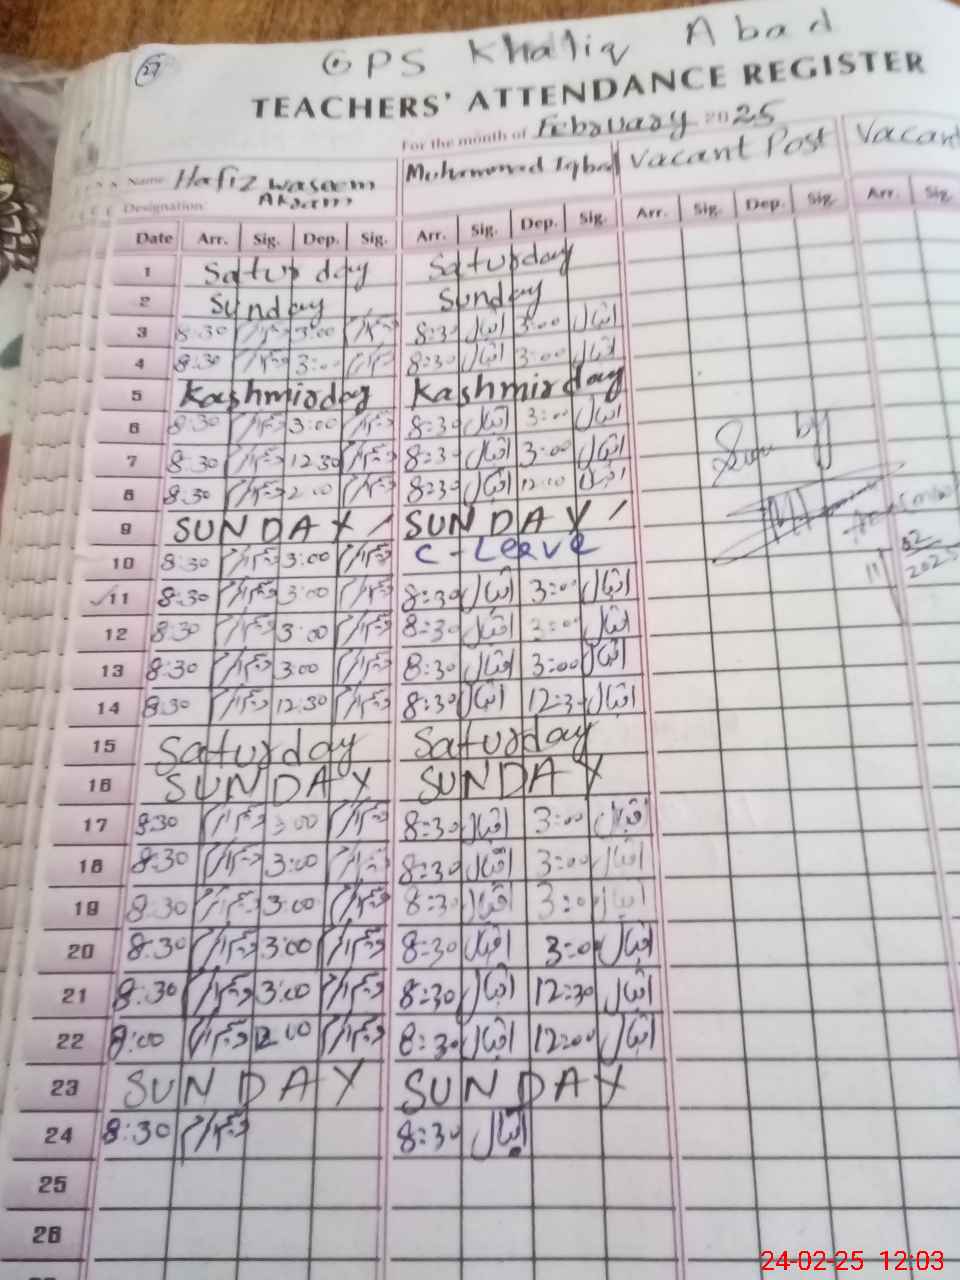 27
GPS Khaliq Abad
TEACHERS' ATTENDANCE REGISTER
For the month of February 2025
Name Hafiz Waseem Akram Muhammad Iqbal Vacant Post Vacant
Designation
Date Arr. Sig. Dep. Sig. Arr. Sig. Dep. Sig. Arr. Sig. Dep. Sig. Arr. Sig.
1 Saturday Saturday
2 Sunday Sunday
3 8:30 3:00 8:30 اقبال 3:00 اقبال
4 8:30 3:00 8:30 اقبال 3:00 اقبال
5 Kashmirday Kashmirday
6 8:30 3:00 8:30 اقبال 3:00 اقبال
7 8:30 12:30 8:30 اقبال 3:00 اقبال
8 8:30 2:00 8:30 اقبال 12:00 اقبال
9 SUNDAY SUNDAY
10 8:30 3:00 C-Leave
11 8:30 3:00 8:30 اقبال 3:00 اقبال
11/02/2025
12 8:30 3:00 8:30 اقبال 3:00 اقبال
13 8:30 3:00 8:30 اقبال 3:00 اقبال
14 8:30 12:30 8:30 اقبال 12:3 اقبال
15 Saturday Saturday
16 SUNDAY SUNDAY
17 8:30 3:00 8:30 اقبال 3:00 اقبال
18 8:30 3:00 8:30 اقبال 3:00 اقبال
19 8:30 3:00 8:30 اقبال 3:0 اقبال
20 8:30 3:00 8:30 اقبال 3:0 اقبال
21 8:30 3:00 8:30 اقبال 12:30 اقبال
22 8:00 12:00 8:30 اقبال 12:00 اقبال
23 SUNDAY SUNDAY
24 8:30 8:30 اقبال
25
26
24-02-25 12:03